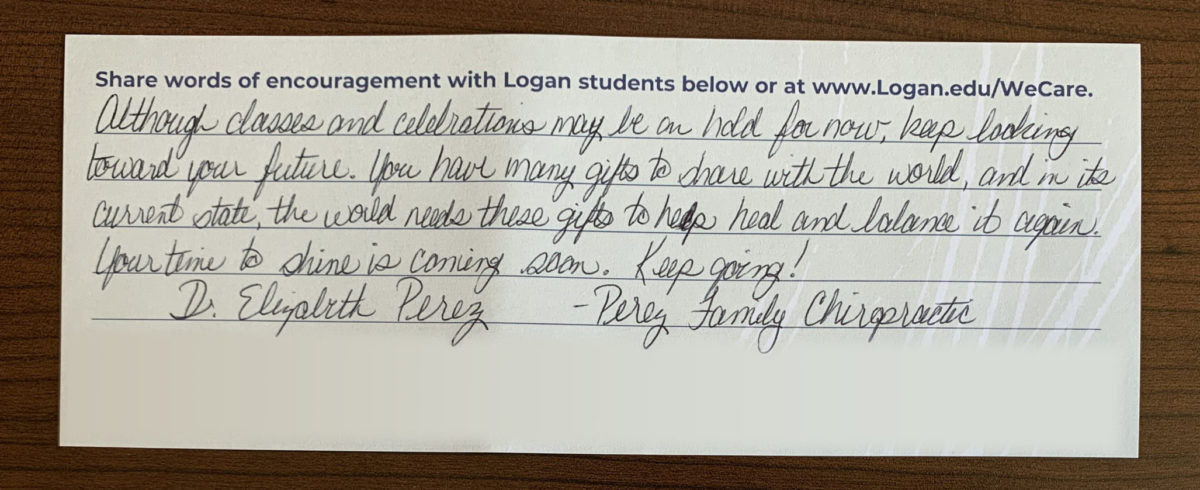 Share words of encouragement with Logan students below or at www.Logan.edu/WeCare.
Although classes and celebrations may be on hold for now, keep looking
toward your future. You have many gifts to share with the world, and in its
current state, the world needs these gifts to help heal and balance it again.
Your time to shine is coming soon. Keep going!
Dr. Elizabeth Perez - Perez Family Chiropractic